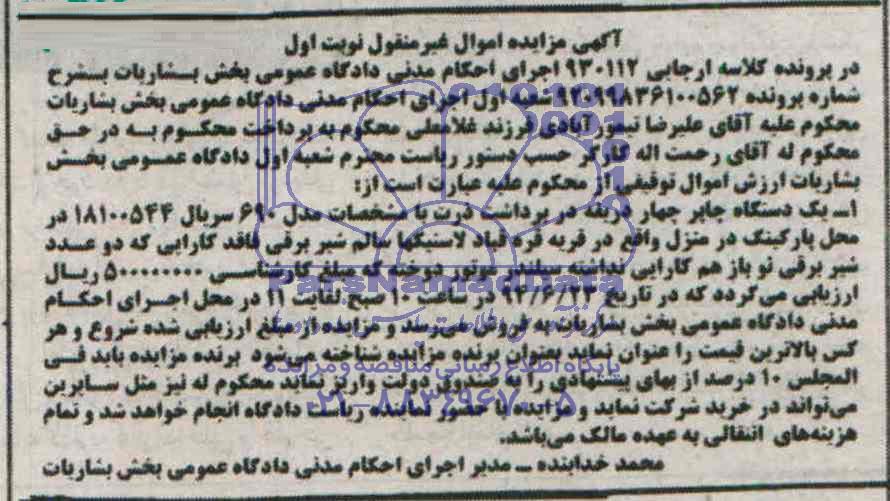 آگهی مزایده اموال غیرمنقول نوبت اول
در پرونده کلاسه ارجایی ۹۳۰۱۱۲ اجرای احکام مدنی دادگاه عمومی بخش بشاریات بشرح
شماره پرونده ۹۲۰۹۹۸۳۶۱۰۰۵۶۲ شعبه اول اجرای احکام مدنی دادگاه عمومی بخش بشاریات
محکوم علیه آقای علیرضا تیمورآبادی فرزند غلامعلی محکوم به پرداخت محکوم به در حق
محکوم له آقای رحمت اله کارگر حسب دستور ریاست محترم شعبه اول دادگاه عمومی بخش
بشاریات ارزش اموال توقیفی از محکوم علیه عبارت است از:
۱ـ یک دستگاه چاپر چهار ردیفه در برداشت ذرت با مشخصات مدل ۶۹۰ سریال ۱۸۱۰۰۵۴۴ در
محل پارکینگ در منزل واقع در قریه قره قباد لاستیکها سالم شیر برقی فاقد کارایی که دو عدد
شیر برقی نو باز هم کارایی نداشته سیلندر موتور دوخته که مبلغ کارشناسی ۵۰۰۰۰۰۰۰۰ ریال
ارزیابی می گردد که در تاریخ در ساعت ۱۰ صبح لغایت ۱۱ در محل اجرای احکام
مدنی دادگاه عمومی بخش بشاریات به فروش میرسد و مزایده از مبلغ ارزیابی شده شروع و هر
کس بالاترین قیمت را عنوان نماید بعنوان برنده مزایده شناخته می‌شود برنده مزایده باید فی
المجلس ۱۰ درصد از بهای پیشنهادی را به صندوق دولت واریز نماید محکوم له نیز مثل سایرین
می‌تواند در خرید شرکت نماید و مزایده با حضور نماینده ریاست دادگاه انجام خواهد شد و تمام
هزینه‌های انتقالی به عهده مالک می‌باشد.
محمد خدابنده ـ مدیر اجرای احکام مدنی دادگاه عمومی بخش بشاریات
ParsNamadData
پایگاه اطلاع رسانی مناقصه و مزایده
۰۲۱-۸۸۳۴۹۶۷۰-۵